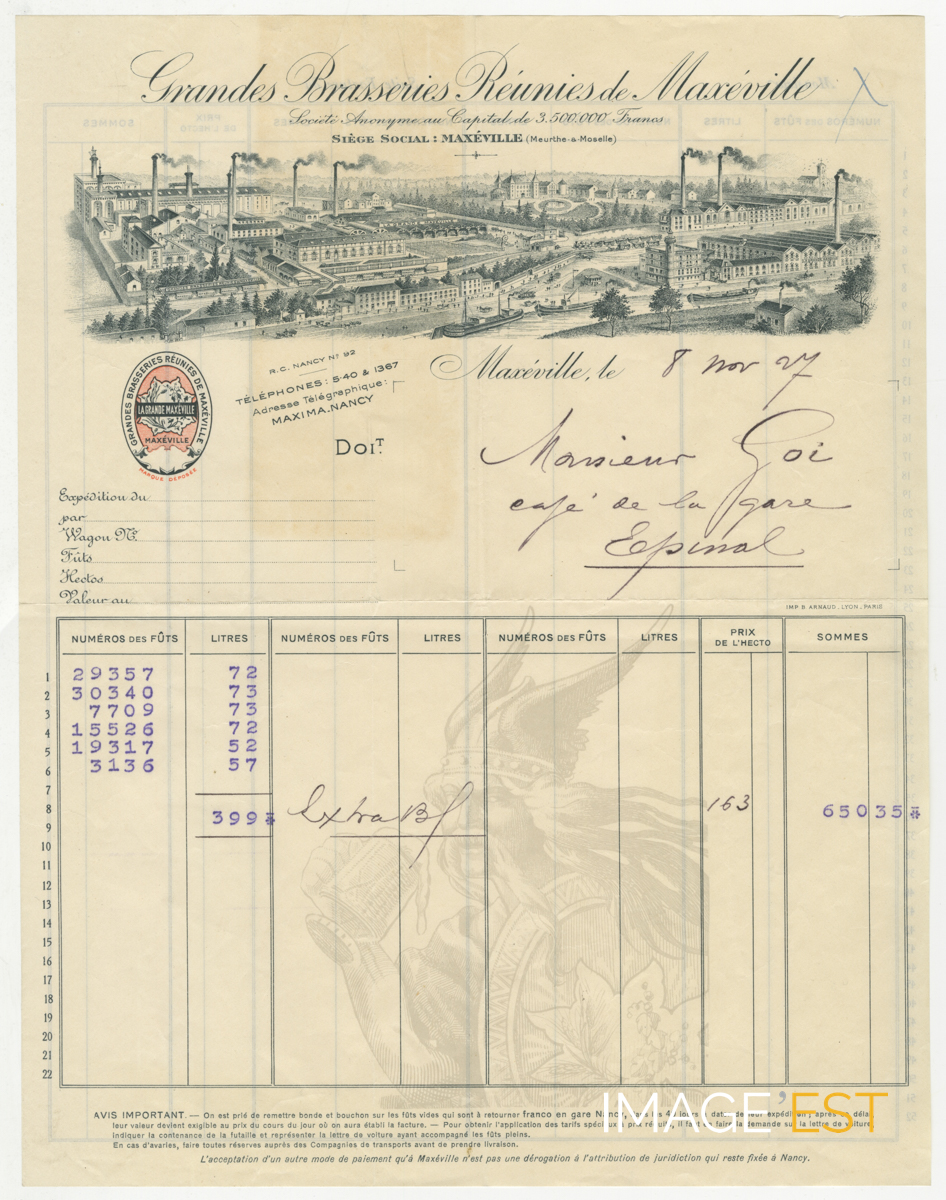 Grandes Brasseries Réunies de Maxéville
Société Anonyme au Capital de 3.500.000 Francs
SIÈGE SOCIAL : MAXÉVILLE (Meurthe-&-Moselle)
GRANDES BRASSERIES RÉUNIES DE MAXÉVILLE
LA GRANDE MAXÉVILLE
MAXÉVILLE
MARQUE DÉPOSÉE
R.C. NANCY Nº 92
TÉLÉPHONES : 5-40 & 1367
Adresse Télégraphique :
MAXIMA.NANCY
Maxéville, le 8 nov 27
DOIT.
Monsieur Goi
café de la gare
Epinal
Expédition du
par
Wagon Nº.
Fûts
Hectos
Valeur au
IMP. B. ARNAUD_LYON_PARIS
NUMÉROS DES FÛTS LITRES NUMÉROS DES FÛTS LITRES NUMÉROS DES FÛTS LITRES PRIX DE L'HECTO SOMMES
1 29357 72
2 30340 73
3 7709 73
4 15526 72
5 19317 52
6 3136 57
7
8 399* Extra Bf 163 65035*
9
10
11
12
13
14
15
16
17
18
19
20
21
22
AVIS IMPORTANT. — On est prié de remettre bonde et bouchon sur les fûts vides qui sont à retourner franco en gare Nancy, dans les 40 jours de date de leur expédition ; après ce délai
leur valeur devient exigible au prix du cours du jour où on aura établi la facture. — Pour obtenir l'application des tarifs spéciaux de retour, il faut en faire la demande sur la lettre de voiture
indiquer la contenance de la futaille et représenter la lettre de voiture ayant accompagné les fûts pleins.
En cas d'avaries, faire toutes réserves auprès des Compagnies de transports avant de prendre livraison.
L'acceptation d'un autre mode de paiement qu'à Maxéville n'est pas une dérogation à l'attribution de juridiction qui reste fixée à Nancy.
IMAGE'EST